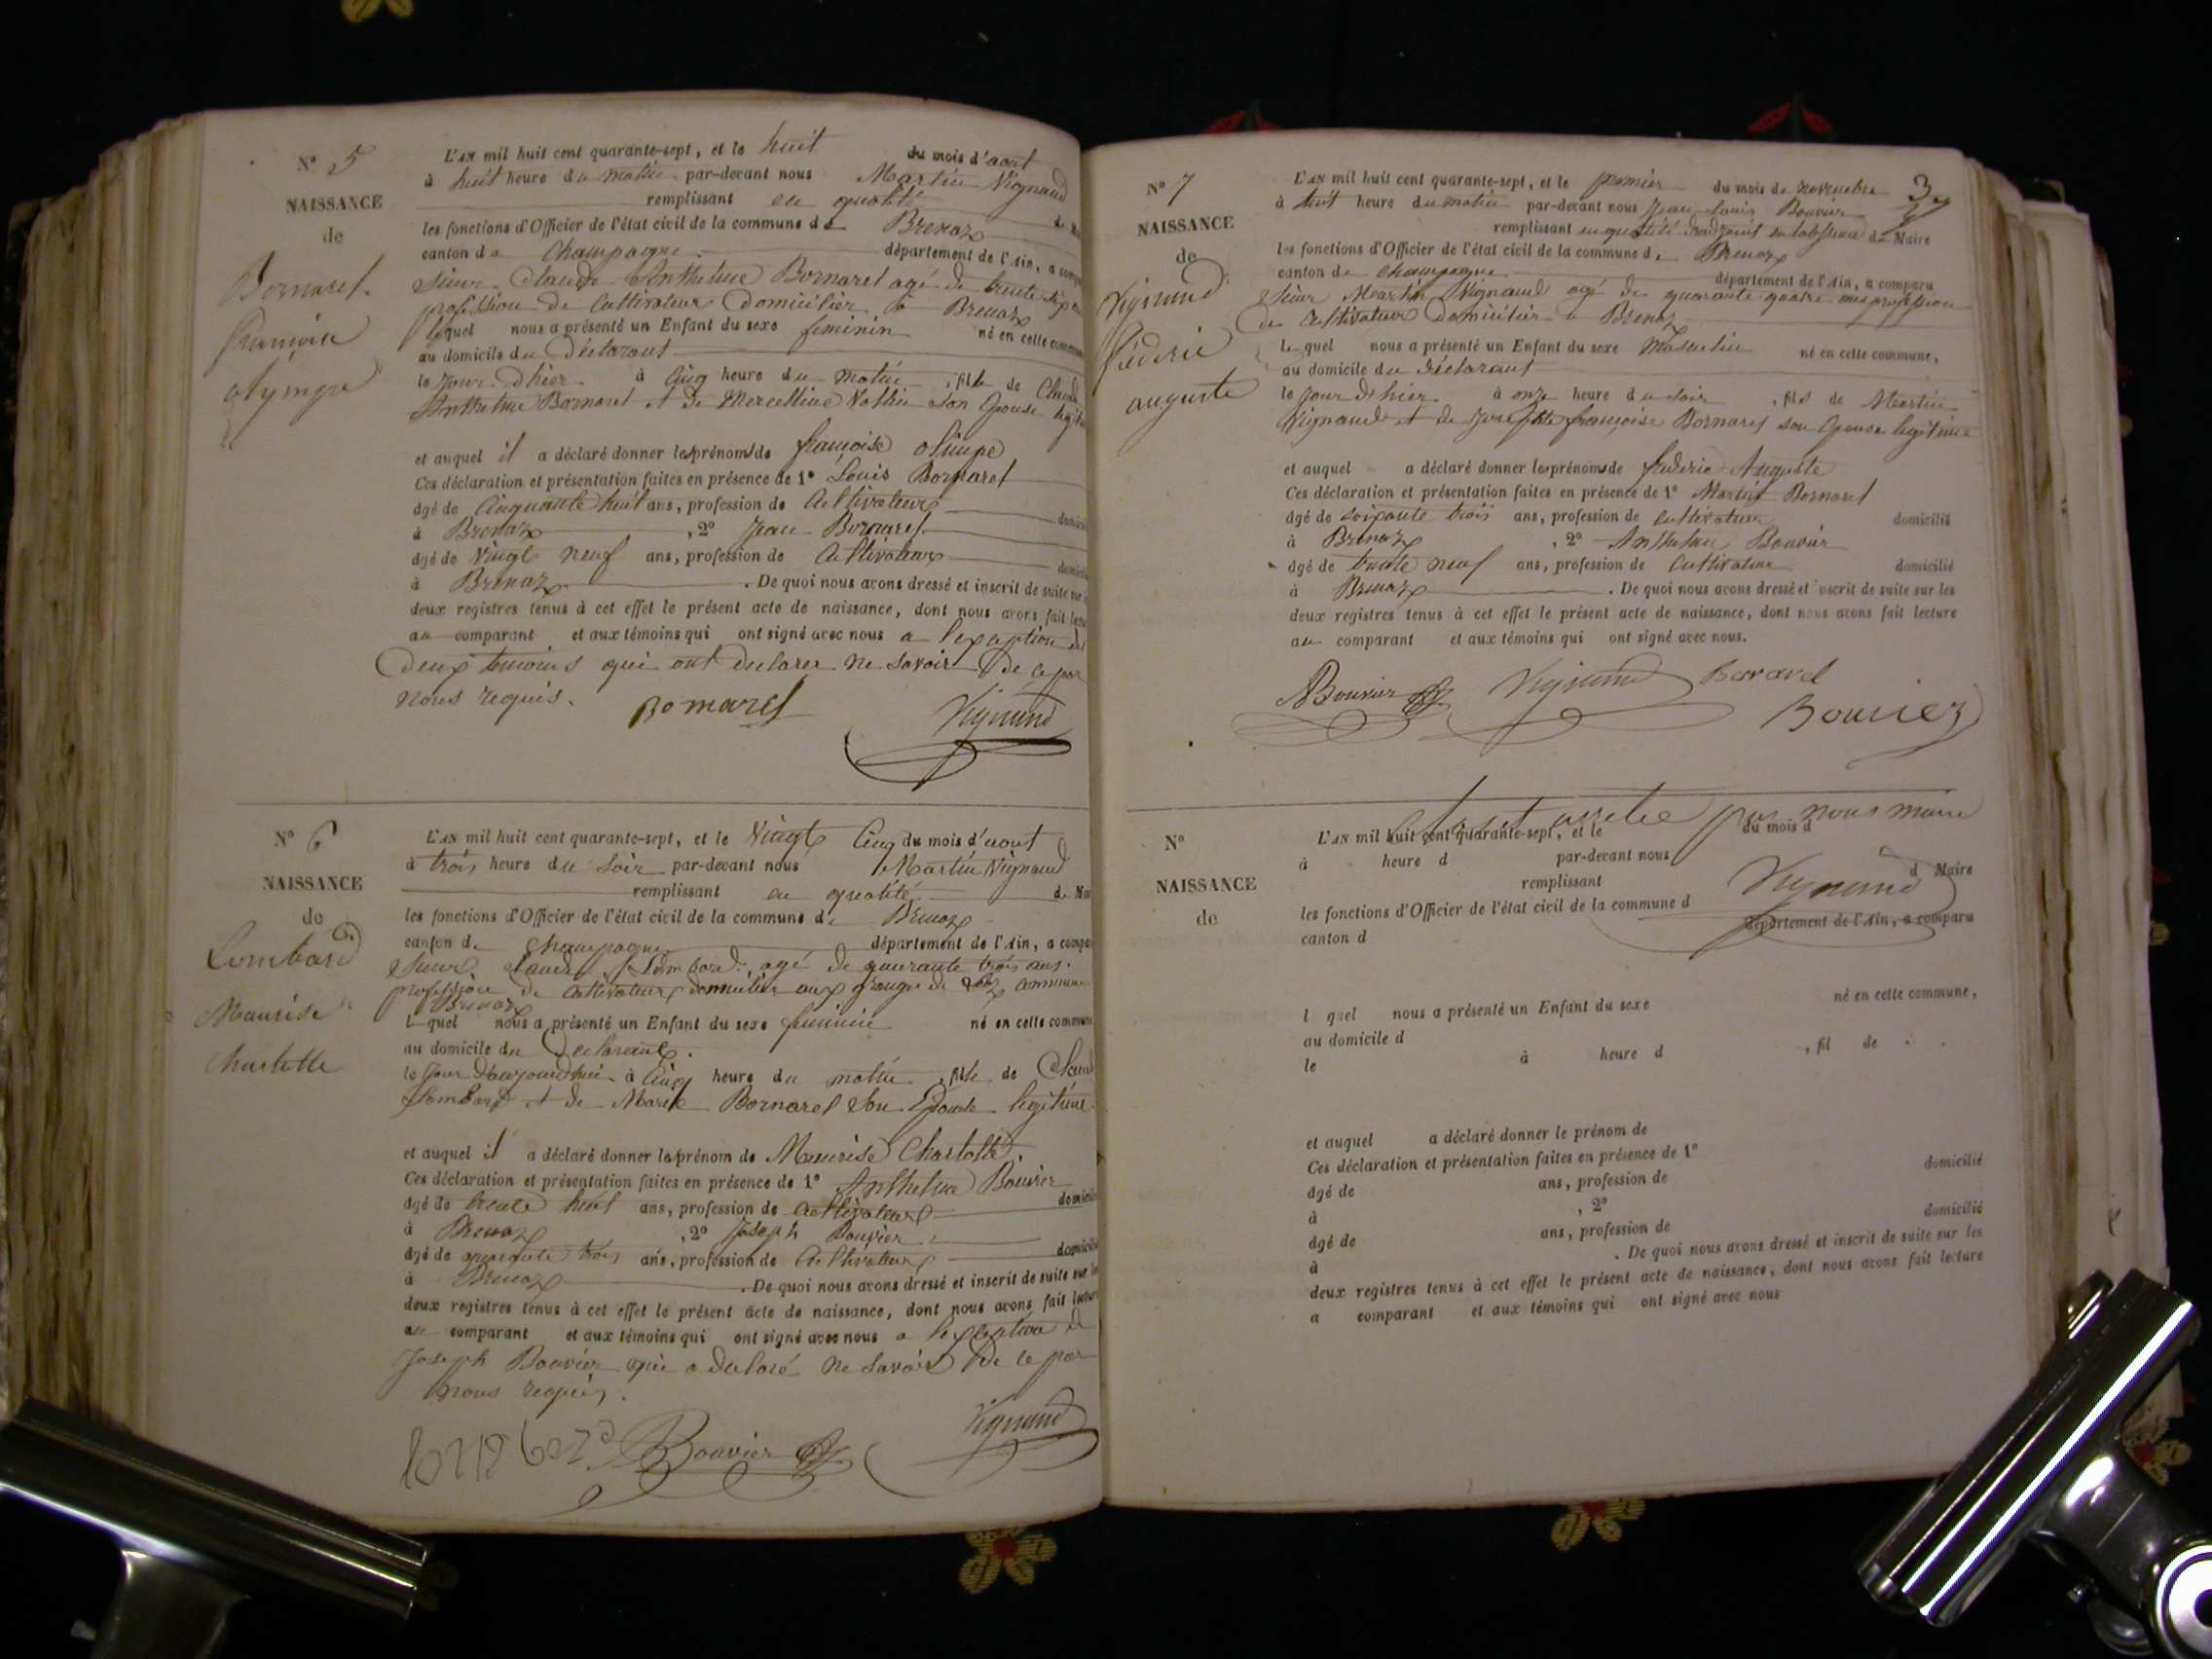 N° 5
NAISSANCE
de
Bornarel
françoise
olympe
L'AN mil huit cent quarante-sept, et le huit du mois d'aout
à huit heure du matin par-devant nous Martin Vignaud
remplissant en qualité de
les fonctions d'Officier de l'état civil de la commune de Brenaz
canton de Champagne département de l'Ain, a
sieur Claude Anthelme Bornarel agé de trente
profession de Cultivateur Domicilier à Brenaz
lequel nous a présenté un Enfant du sexe feminin né en cette
au domicile du Déclarant
le jour d'hier à Cinq heure du matin, fille de
Anthelme Bornarel et de Mercelline son Epouse
et auquel il a déclaré donner les prénoms de françoise olimpe
Ces déclaration et présentation faites en présence de 1° Louis Bornarel
âgé de Cinquante huit ans, profession de Cultivateur
à Brenaz, 2° Jean Bornarel
âgé de Vingt neuf ans, profession de Cultivateur
à Brenaz. De quoi nous avons dressé et inscrit de suite sur
deux registres tenus à cet effet le présent acte de naissance, dont nous avons fait
au comparant et aux témoins qui ont signé avec nous a l'exception des
Deux temoins qui ont declarer ne savoir De ce par
nous requis.
Bornarel Vignaud
N° 6
NAISSANCE
de
Lombard
Maurise
Charlotte
L'AN mil huit cent quarante-sept, et le Vingt Cinq du mois d'aout
à trois heure du soir par-devant nous Martin Vignaud
remplissant en qualité de
les fonctions d'Officier de l'état civil de la commune de Brenaz
canton de Champagne département de l'Ain, a
sieur Claude Lombard agé de quarante trois ans.
profession de Cultivateur domicilier aux granges de commune
Brenaz
lequel nous a présenté un Enfant du sexe feminin né en cette
au domicile du Declarant.
le jour d'aujourdhui à Cinq heure du matin, fille de
Lombard et de Marie Bornarel son Epouse legitime
et auquel il a déclaré donner les prénom de Maurise Charlotte.
Ces déclaration et présentation faites en présence de 1° Anthelme Bouvier
âgé de trente huit ans, profession de Cultivateur
à Brenaz, 2° Joseph Bouvier
âgé de quarante trois ans, profession de Cultivateur
à Brenaz. De quoi nous avons dressé et inscrit de suite sur
deux registres tenus à cet effet le présent acte de naissance, dont nous avons fait
au comparant et aux témoins qui ont signé avec nous a l'exception de
Joseph Bouvier qui a declaré ne savoir De ce par
nous requis.
Bouvier Vignaud
37
N° 7
NAISSANCE
de
Vignaud
fréderic
auguste
L'AN mil huit cent quarante-sept, et le premier du mois de novembre
à huit heure du matin par-devant nous Jean Louis Bouvier
remplissant en qualité d'adjoint en l'absence de Maire
les fonctions d'Officier de l'état civil de la commune de Brenaz
canton de Champagne département de l'Ain, a comparu
sieur Martin Vignaud agé de quarante quatre ans profession
de Cultivateur Domicilier à Brenaz
Lequel nous a présenté un Enfant du sexe Masculin né en cette commune,
au domicile du Déclarant
le jour d'hier à onze heure du soir, fils de Martin
Vignaud et de Josephte françoise Bornarel son Epouse legitime
et auquel a déclaré donner les prénoms de frederic Auguste
Ces déclaration et présentation faites en présence de 1° Martin Bornarel
âgé de soixante trois ans, profession de Cultivateur domicilié
à Brenaz, 2° Anthelme Bouvier
âgé de trente neuf ans, profession de Cultivateur domicilié
à Brenaz. De quoi nous avons dressé et inscrit de suite sur les
deux registres tenus à cet effet le présent acte de naissance, dont nous avons fait lecture
au comparant et aux témoins qui ont signé avec nous.
Bouvier Vignaud Bornarel
Bouvier
Clos et arretée par nous maire
Vignaud
N°
NAISSANCE
de
L'AN mil huit cent quarante-sept, et le du mois d
à heure d par-devant nous
remplissant d Maire
les fonctions d'Officier de l'état civil de la commune d
canton d département de l'Ain, a comparu
l quel nous a présenté un Enfant du sexe né en cette commune,
au domicile d
le à heure d, fil de
et auquel a déclaré donner le prénom de
Ces déclaration et présentation faites en présence de 1°
âgé de ans, profession de domicilié
à, 2°
âgé de ans, profession de domicilié
à. De quoi nous avons dressé et inscrit de suite sur les
deux registres tenus à cet effet le présent acte de naissance, dont nous avons fait lecture
a comparant et aux témoins qui ont signé avec nous